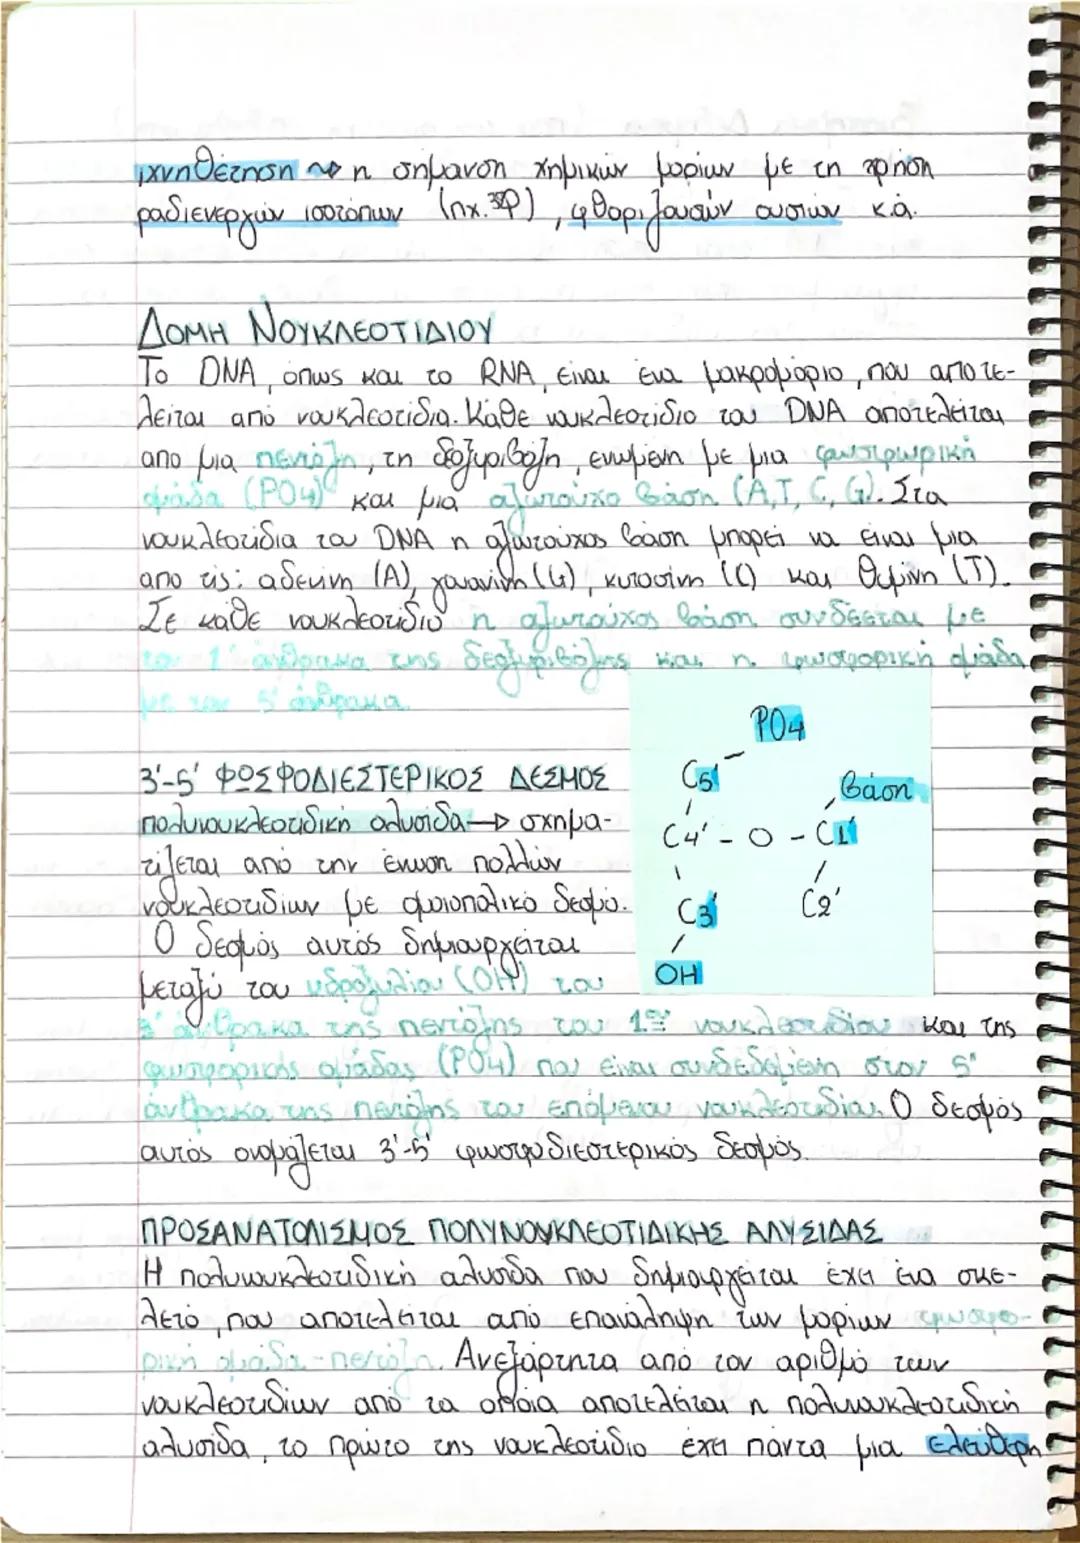 ιχνηθέτηση ~> η σήμανση χημικών μορίων με τη χρήση
ραδιενεργών ισοτόπων (πχ. ³²P), φθοριζουσών ουσιών κ.ά.
ΔΟΜΗ ΝΟΥΚΛΕΟΤΙΔΙΟΥ
Το DNA, όπως και το RNA, είναι ένα μακρομόριο, που αποτε-
λείται από νουκλεοτίδια. Κάθε νουκλεοτίδιο του DNA αποτελείται
απο μια πεντόζη, τη δεοξυριβόζη, ενωμένη με μια φωσφωρική
ομάδα (PO4) και μια αζωτούχο βάση (A,T, C, G). Στα
νουκλεοτίδια του DNA η αζωτούχος βάση μπορεί να είναι μια
απο τις: αδενίνη (A), γουανίνη (G), κυτοσίνη (C) και θυμίνη (T).
Σε κάθε νουκλεοτίδιο η αζωτούχος βάση συνδέεται με
τον 1' άνθρακα της δεοξυριβόζης και η φωσφορική ομάδα
με τον 5' άνθρακα.
PO4
C5'
βάση
C4' - O - C1'
C3'
C2'
OH
3'-5' ΦΩΣΦΟΔΙΕΣΤΕΡΙΚΟΣ ΔΕΣΜΟΣ
πολυνουκλεοτιδική αλυσίδα → σχημα-
τίζεται από την ένωση πολλών
νουκλεοτιδίων με ομοιοπολικό δεσμό.
Ο δεσμός αυτός δημιουργείται
μεταξύ του υδροξυλίου (OH) του
3' άνθρακα της πεντόζης του 1ου νουκλεοτιδίου και της
φωσφορικής ομάδας (PO4) που είναι συνδεδεμένη στον 5'
άνθρακα της πεντόζης του επόμενου νουκλεοτιδίου. Ο δεσμός
αυτός ονομάζεται 3'-5' φωσφοδιεστερικός δεσμός.
ΠΡΟΣΑΝΑΤΟΛΙΣΜΟΣ ΠΟΛΥΝΟΥΚΛΕΟΤΙΔΙΚΗΣ ΑΛΥΣΙΔΑΣ
Η πολυνουκλεοτιδική αλυσίδα που δημιουργείται έχει ένα σκε-
λετό, που αποτελείται από επανάληψη των μορίων φωσφο-
ρική ομάδα - πεντόζη. Ανεξάρτητα από τον αριθμό των
νουκλεοτιδίων από τα οποία αποτελείται η πολυνουκλεοτιδική
αλυσίδα, το πρώτο της νουκλεοτίδιο έχει πάντα μια ελεύθερη